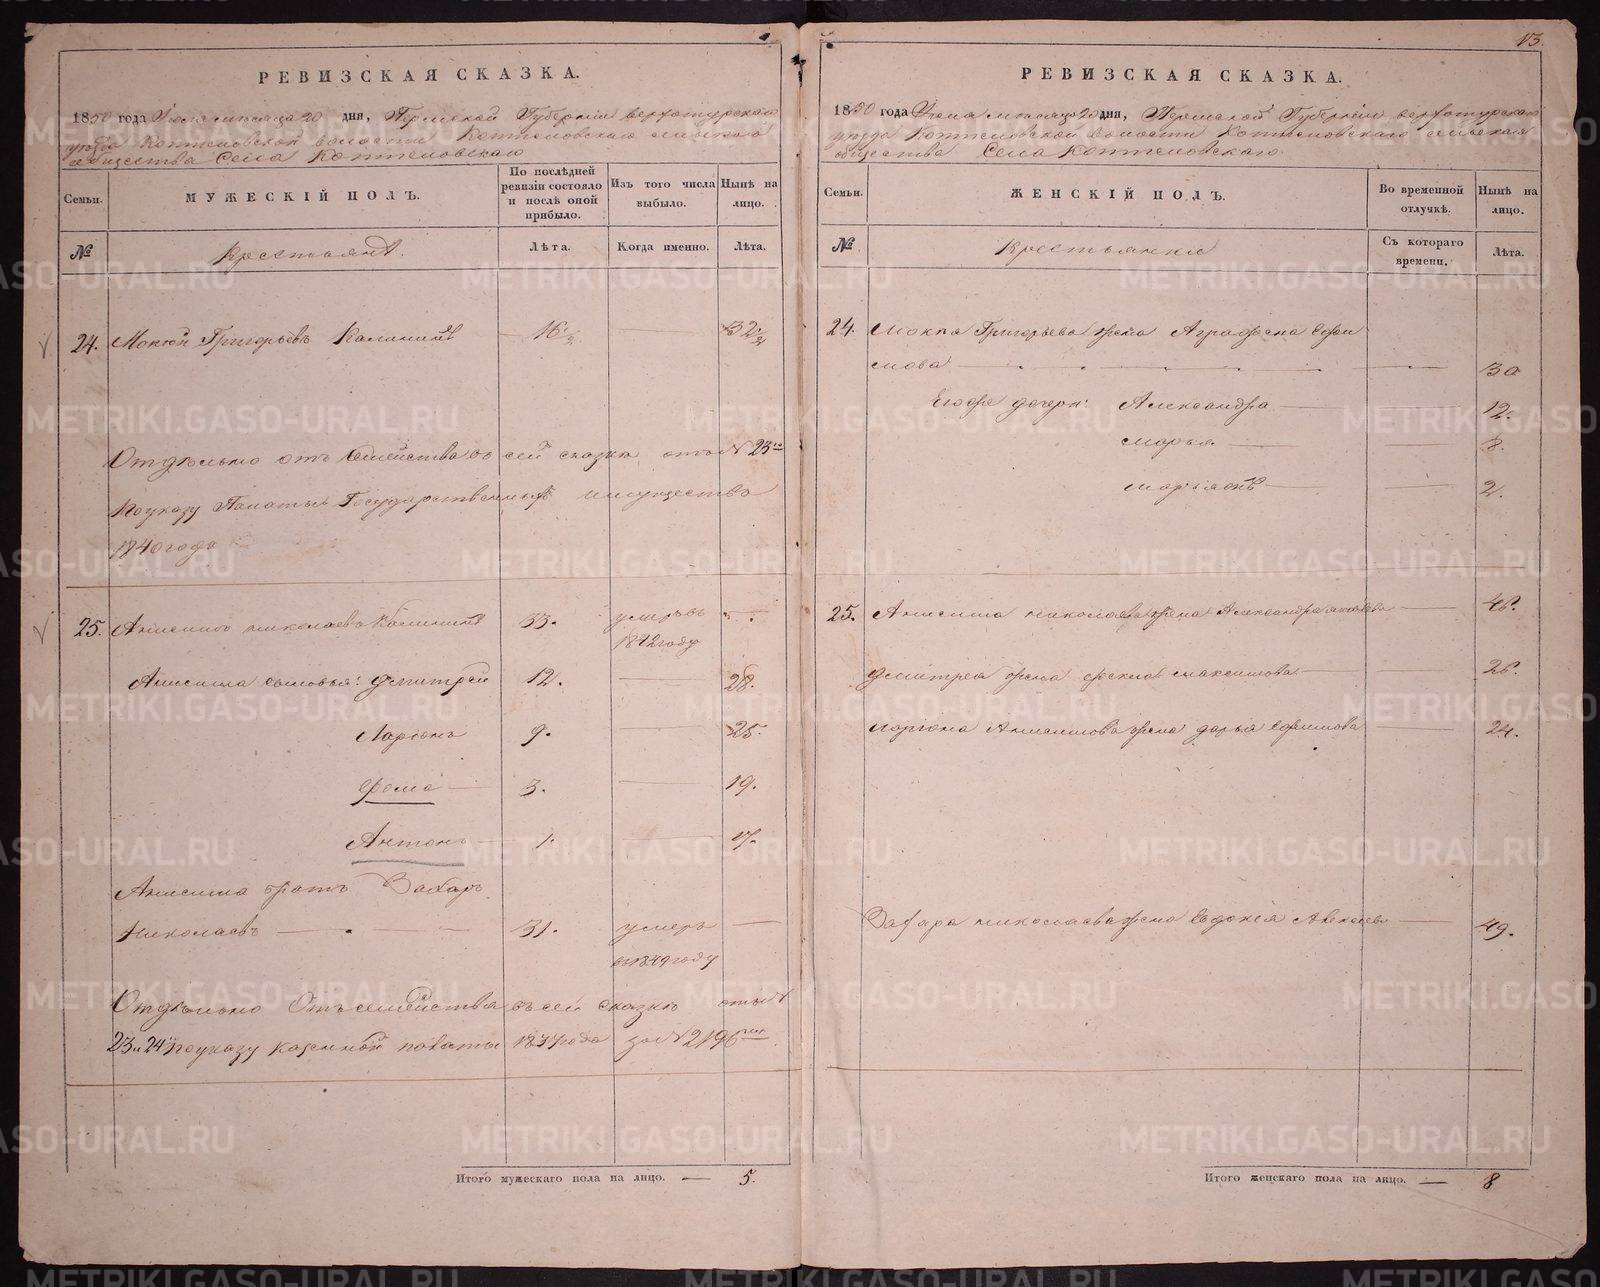 РЕВИЗСКАЯ СКАЗКА.
1850 года Іюля мѣсяца 20 дня, Пермской Губерніи верхотурскаго
уѣзда Коптеловской волости Коптеловскаго сельскаго
общества Села Коптеловскаго
Семьи.
МУЖЕСКІЙ ПОЛЪ.
По послѣдней ревизіи состояло и послѣ оной прибыло.
Изъ того числа выбыло.
Нынѣ на лицо.
№
Крестьяне.
Лѣта.
Когда именно.
Лѣта.
24. Григорьевъ Калининъ 16 1/2 32 1/2
Отдѣльно отъ семейства въ сей сказкѣ отъ № 23го
по указу Палаты Государственныхъ имуществъ
1840 года
25. Анисимъ николаевъ Калининъ 33. умеръ въ
1842 году
Анисима сыновья: Дмитрей 12. 28.
Ларіонъ 9. 25.
Фома 3. 19.
Антонъ 1. 17.
Анисима братъ Захаръ
Николаевъ 31. умеръ
въ 1849 году
Отдѣльно Отъ семейства въ сей сказкѣ отъ №
23 и 24 по указу казенной палаты 1837 года за № 2196
Итого мужескаго пола на лицо. — 5.
13.
РЕВИЗСКАЯ СКАЗКА.
1850 года Іюля мѣсяца 20 дня, Пермской Губерніи верхотурскаго
уѣзда Коптеловской волости Коптеловскаго сельскаго
общества Села Коптеловскаго
Семьи.
ЖЕНСКІЙ ПОЛЪ.
Во временной отлучкѣ.
Нынѣ на лицо.
№
Крестьянки
Съ котораго времени.
Лѣта.
24. Григорьева жена Аграфена Ефи
мова 30
Его же дочери: Александра 12.
марья 8.
2.
25. Анисима николаева жена Александра 48.
Дмитрея жена максимова 28.
Ларіона Анисимова жена дарья Ефимова 24.
Захара николаева жена Евдокея 49.
Итого женскаго пола на лицо. — 8
METRIKI.GASO-URAL.RU